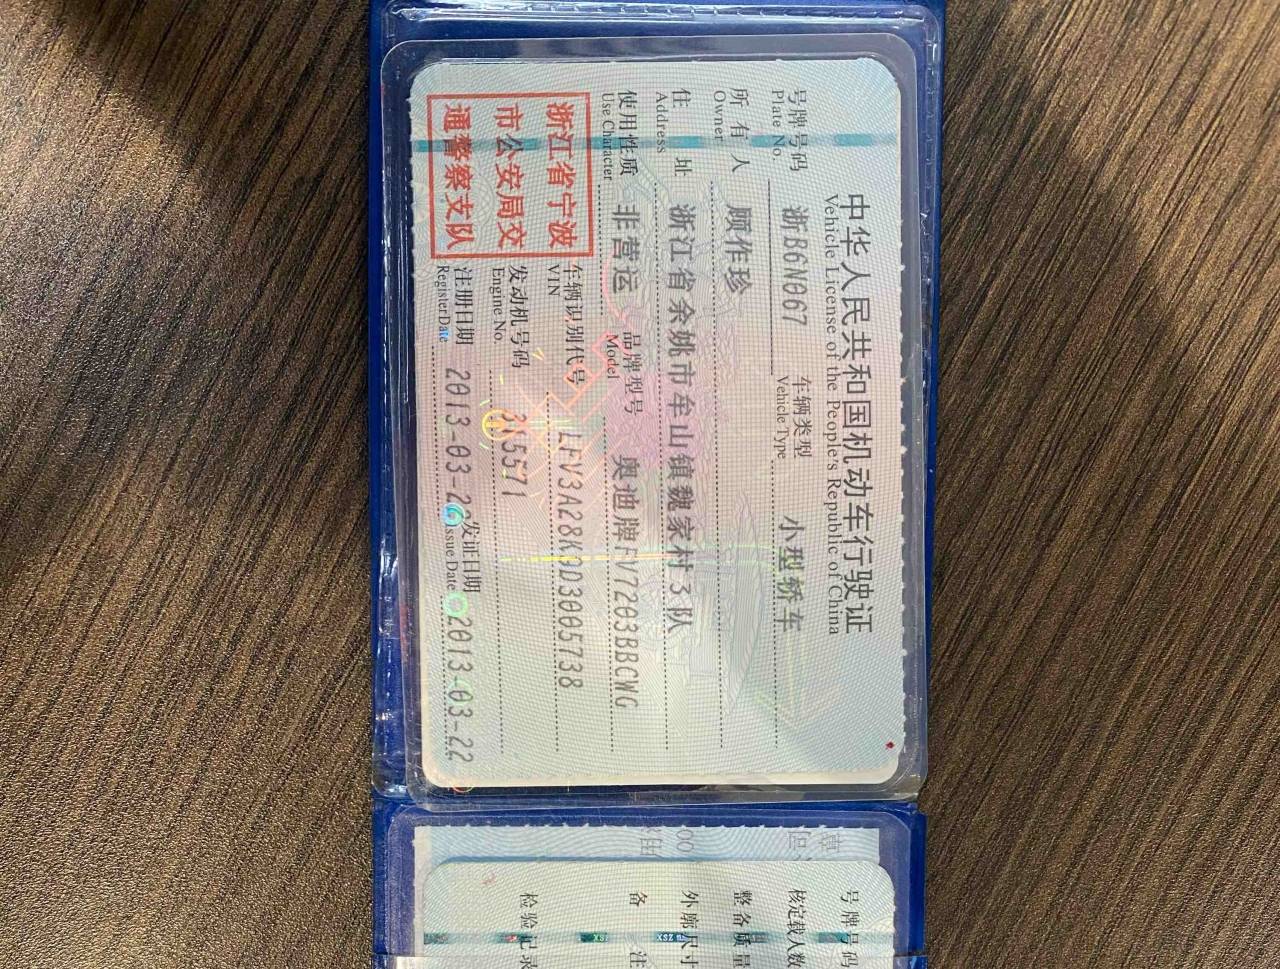 中华人民共和国机动车行驶证
Vehicle License of the People's Republic of China
号牌号码 浙B6N067 车辆类型 小型轿车
Plate No. Vehicle Type
所有人 顾作珍
Owner
住址 浙江省余姚市牟山镇魏家村3队
Address
使用性质 非营运 品牌型号 奥迪牌FV7203BBCWG
Use Character Model
浙江省宁波
市公安局交
通警察支队
车辆识别代号 LFV3A28K9D3005738
VIN
发动机号码
Engine No.
注册日期 2013-03-22 发证日期 2013-03-22
Register Date Issue Date
号牌号码
核定载人数
整备质量
外廓尺寸
备注
检验记录